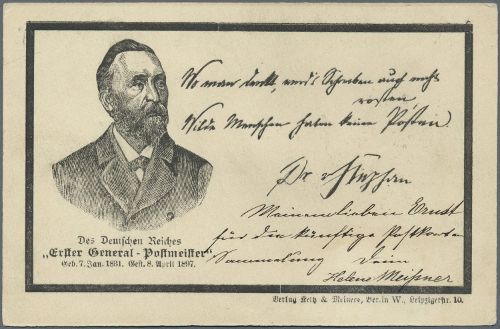 Wo man denkt, wird's Schreiben auch nicht
rosten,
Wilde Menschen haben keine Posten
Dr. v Stephan
Meinem lieben Ernst
für die künftige Postkarten
Sammlung Dein
Helene Meißner
Des Deutschen Reiches
„Erster General-Postmeister“
Geb. 7. Jan. 1831. Gest. 8. April 1897.
Verlag Retz & Meiners, Berlin W., Leipzigerstr. 10.